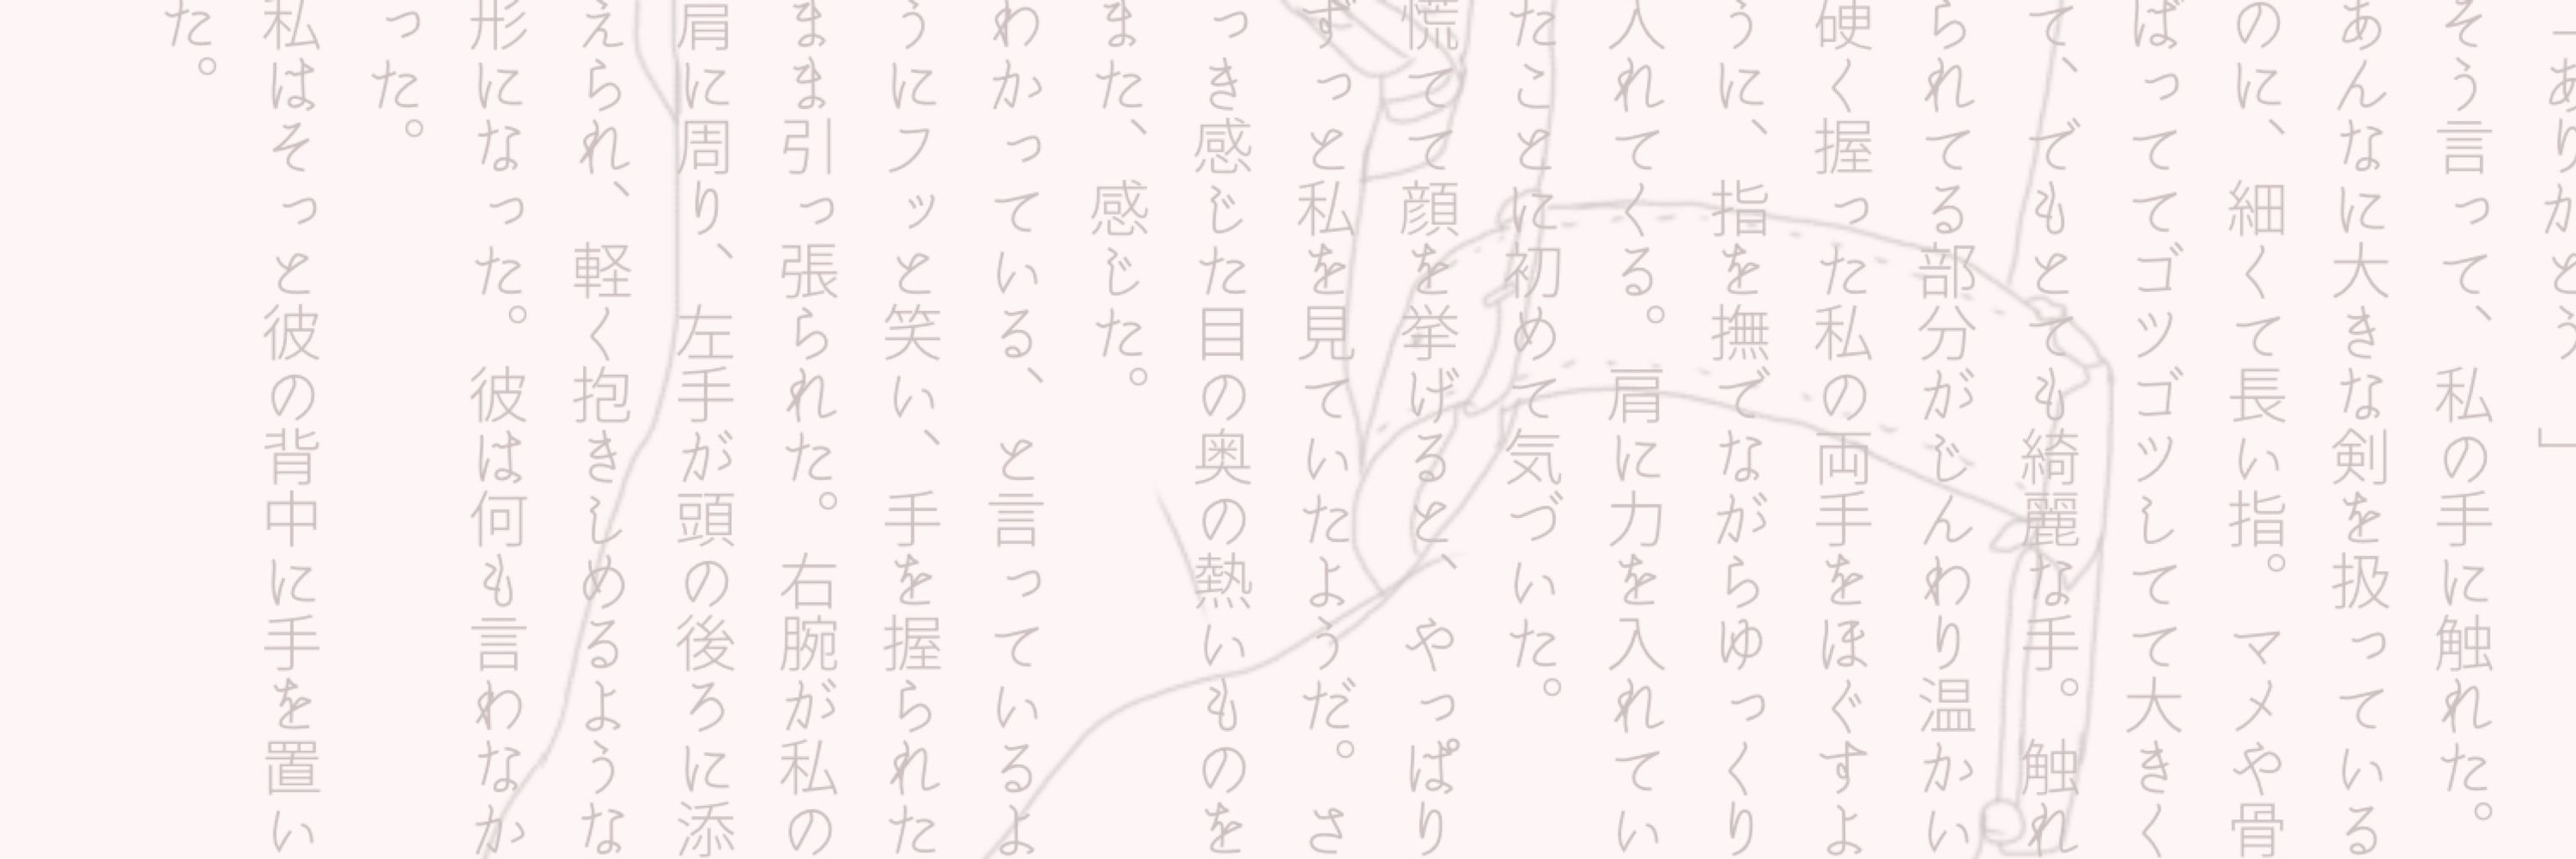 「ありがとう」
そう言って、私の手に触れた。
あんなに大きな剣を扱っている
のに、細くて長い指。マメや骨
ばっててゴツゴツしてて大きく
て、でもとても綺麗な手。触れ
られてる部分がじんわり温かい
硬く握った私の両手をほぐすよ
うに、指を撫でながらゆっくり
入れてくる。肩に力を入れてい
たことに初めて気づいた。
慌てて顔を挙げると、やっぱり
ずっと私を見ていたようだ。さ
っき感じた目の奥の熱いものを
また、感じた。
わかっている、と言っているよ
うにフッと笑い、手を握られた
まま引っ張られた。右腕が私の
肩に周り、左手が頭の後ろに添
えられ、軽く抱きしめるような
形になった。彼は何も言わなか
った。
私はそっと彼の背中に手を置い
た。